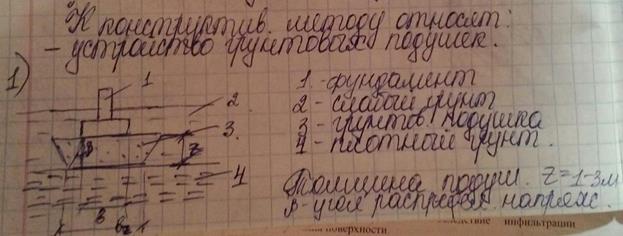 К конструктив. методу относят:
- устройство грунтовых подушек.
1)
1
1 - фундамент
2
2 - слабый грунт
3
3 - грунтов. подушка
4
4 - плотный грунт.
β
z
Толщина подуш. z=1-3м
β - угол распредел. напряж.
в
bz
поверхности
инфильтрации